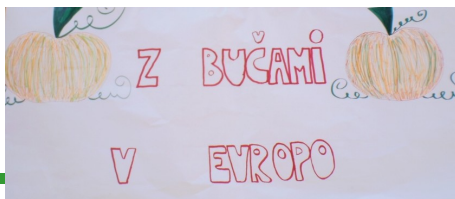 Z BUČAMI
V EVROPO